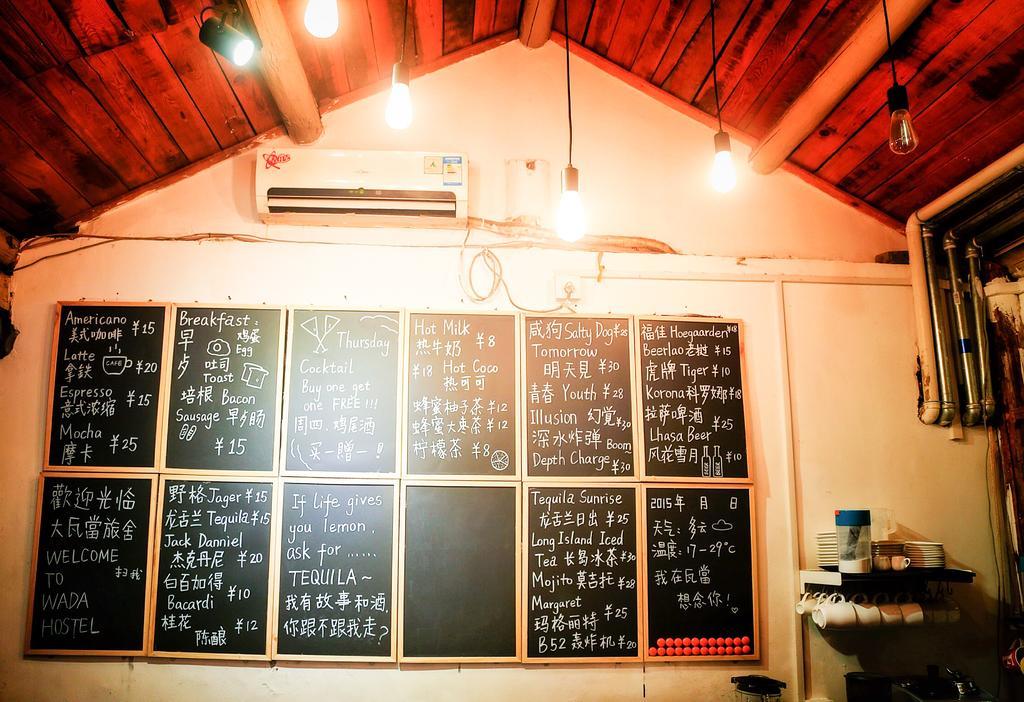 Americano
美式咖啡 ¥15
Latte
拿鉄 CAFE ¥20
Espresso
意式浓缩 ¥15
Mocha
摩卡 ¥25
Breakfast:
早夕 鸡蛋
Egg
吐司
Toast
培根 Bacon
Sausage 早夕肠
¥15
Thursday
Cocktail
Buy one get
one FREE!!!
周四.鸡尾酒
买一赠一!
Hot Milk
热牛奶 ¥8
¥18 Hot Coco
热可可
蜂蜜柚子茶 ¥12
蜂蜜大枣茶 ¥12
柠檬茶 ¥8
咸狗 Salty Dog ¥28
Tomorrow
明天見 ¥30
青春 Youth ¥28
Illusion 幻覚 ¥30
深水炸弹 Boom
Depth Charge ¥30
福佳 Hoegaarden ¥18
Beerlao 老挝 ¥15
虎牌 Tiger ¥10
Korona 科罗娜 ¥18
拉萨啤酒 ¥25
Lhasa Beer
风花雪月 ¥10
歡迎光临
大瓦當旅舍
WELCOME
TO 扫我
WADA
HOSTEL
野格 Jager ¥15
龙舌兰 Tequila ¥15
Jack Danniel
杰克丹尼 ¥20
白百加得
Bacardi ¥10
桂花
陈酿 ¥12
If life gives
you lemon,
ask for ......
TEQUILA~
我有故事和酒.
你跟不跟我走?
Tequila Sunrise
龙舌兰日出 ¥25
Long Island Iced
Tea 长岛冰茶 ¥30
Mojito 莫吉托 ¥28
Margaret
玛格丽特 ¥25
B52 轰炸机 ¥20
2015年 月 日
天气: 多云
温度: 17-29°C
我在瓦當
想念你!